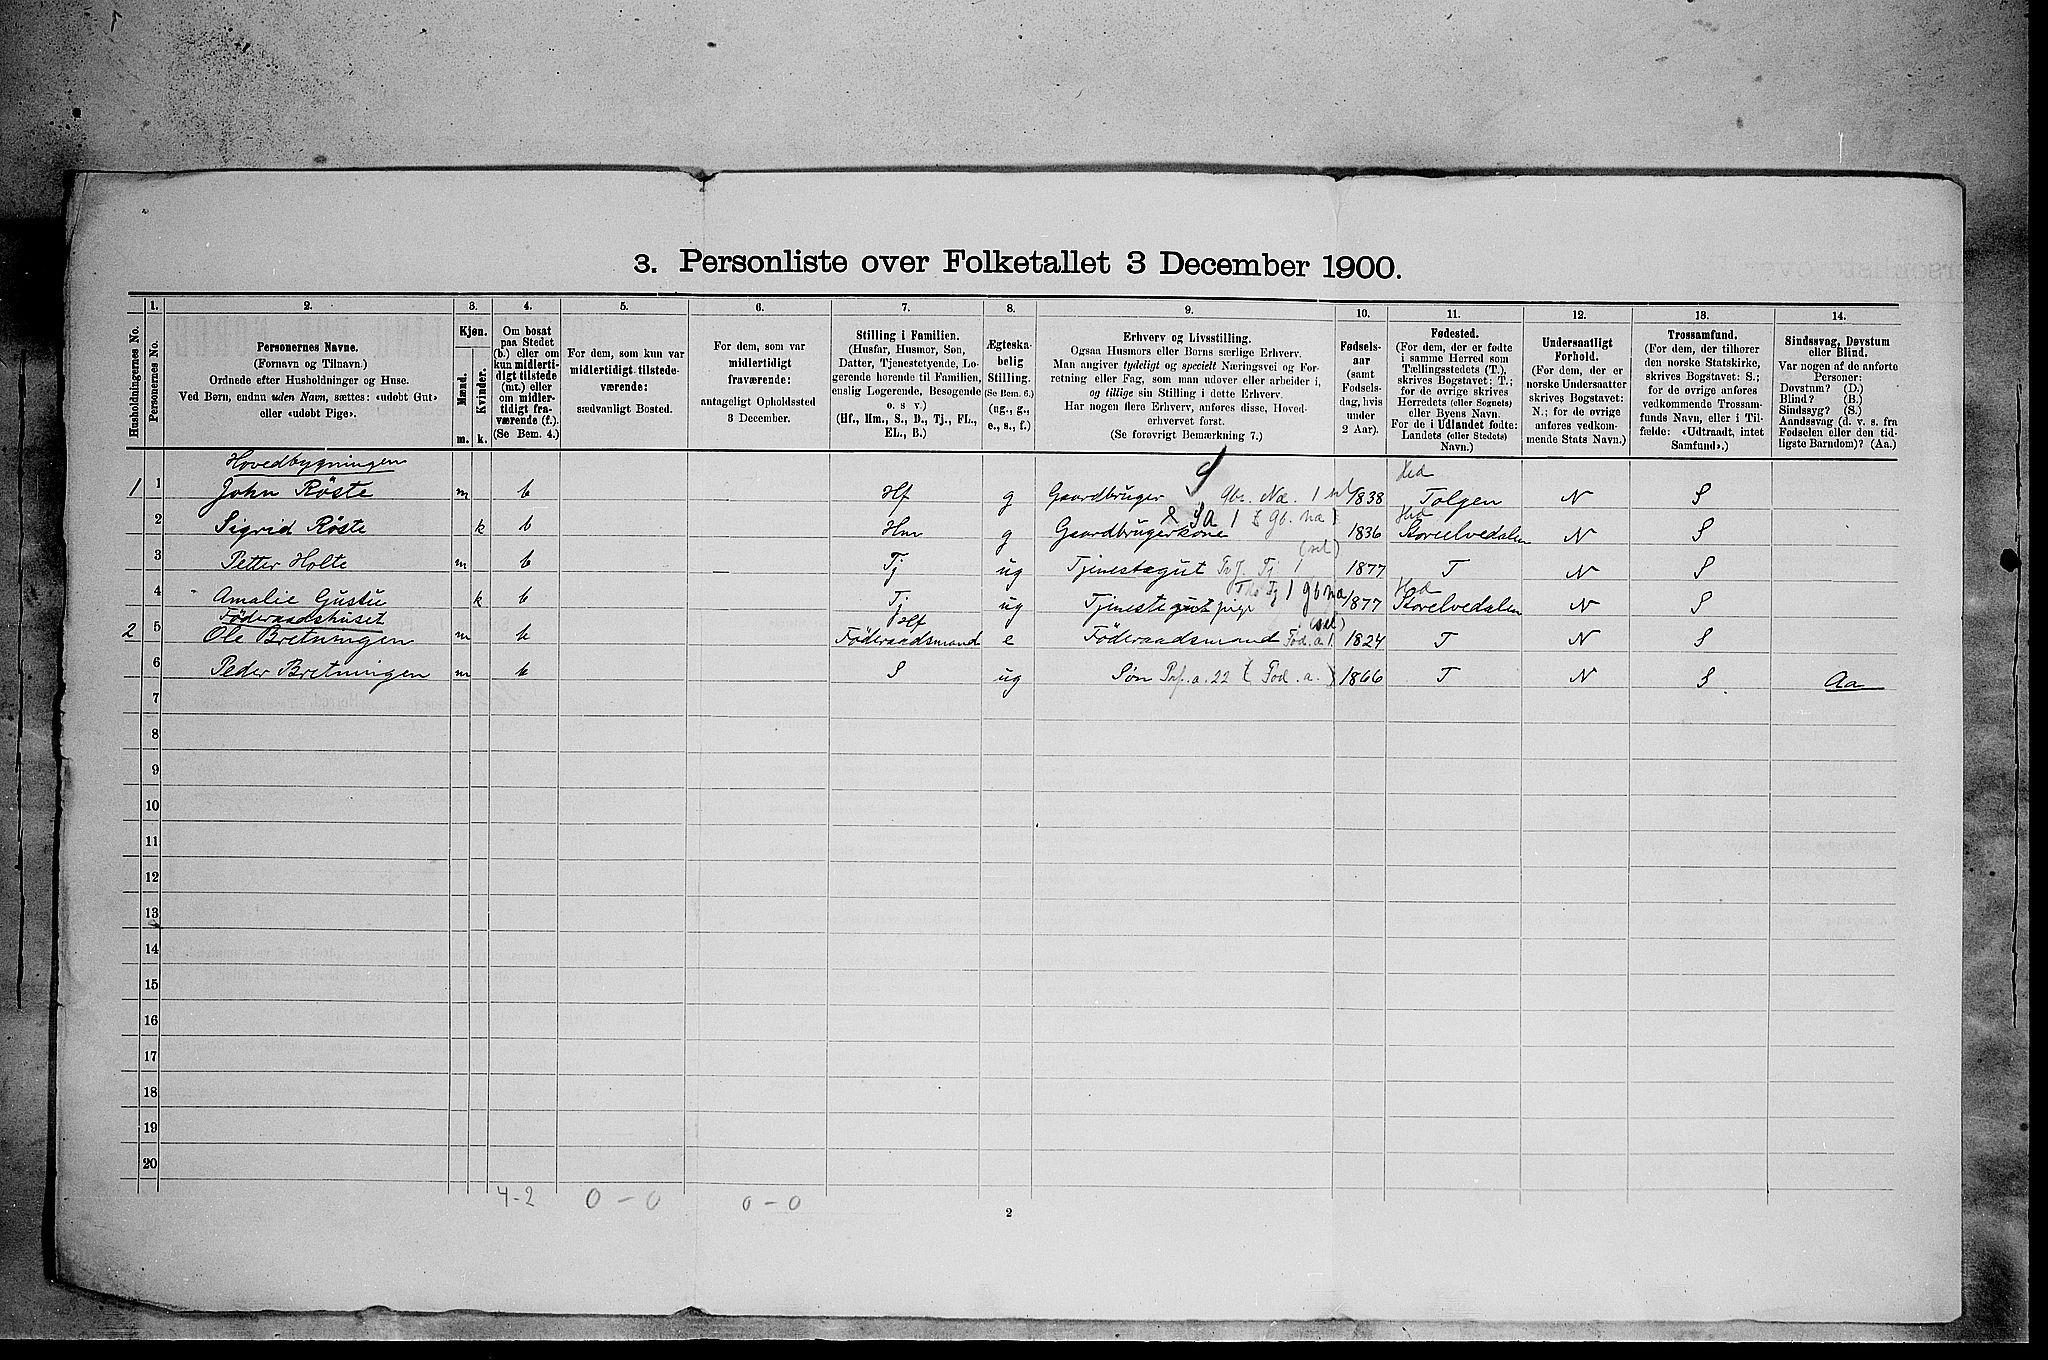 3. Personliste over Folketallet 3 December 1900.
Husholdningernes No.
1.
Personernes No.
2.
Personernes Navne.
(Fornavn og Tilnavn.)
Ordnede efter Husholdninger og Huse.
Ved Børn, endnu uden Navn, sættes: «udøbt Gut»
eller «udøbt Pige».
3.
Kjøn.
Mænd.
Kvinder.
m.
k.
4.
Om bosat
paa Stedet
(b.) eller om
kun midlerti-
digt tilstede
(mt.) eller
om midler-
tidigt fra-
værende (f.).
(Se Bem. 4.)
5.
For dem, som kun var
midlertidigt tilstede-
værende:
sædvanligt Bosted.
6.
For dem, som var
midlertidigt
fraværende:
antageligt Opholdssted
3 December.
7.
Stilling i Familien.
(Husfar, Husmor, Søn,
Datter, Tjenestetyende, Lo-
gerende hørende til Familien,
enslig Logerende, Besøgende
o. s v.)
(Hf., Hm., S., D., Tj., FL.,
EL., B.)
8.
Ægteska-
belig
Stilling.
(Se Bem. 6.)
(ug., g.,
e., s., f.)
9.
Erhverv og Livsstilling.
Ogsaa Husmors eller Børns særlige Erhverv.
Man angiver tydeligt og specielt Næringsvei og For-
retning eller Fag, som man udøver eller arbeider i,
og tillige sin Stilling i dette Erhverv.
Har nogen flere Erhverv, anføres disse, Hoved-
erhvervet først.
(Se forøvrigt Bemærkning 7.)
10.
Fødsels-
aar
(samt
Fødsels-
dag, hvis
under
2 Aar).
11.
Fødested.
(For dem, der er fødte
i samme Herred som
Tællingsstedets (T.),
skrives Bogstavet: T.;
for de øvrige skrives
Herredets (eller Sognets)
eller Byens Navn.
For de i Udlandet fødte:
Landets (eller Stedets)
Navn.)
12.
Undersaatligt
Forhold.
(For dem, der er
norske Undersaatter
skrives Bogstavet:
N.; for de øvrige
anføres vedkom-
mende Stats Navn.)
13.
Trossamfund.
(For dem, der tilhører
den norske Statskirke,
skrives Bogstavet: S.;
for de øvrige anføres
vedkommende Trossam-
funds Navn, eller i Til-
fælde: «Udtraadt, intet
Samfund».)
14.
Sindssvag, Døvstum
eller Blind.
Var nogen af de anførte
Personer:
Døvstum? (D.)
Blind? (B.)
Sindssyg? (S.)
Aandssvag (d. v. s. fra
Fødselen eller den tid-
ligste Barndom)? (Aa.)
Hovedbygningen
1 1 John Röste m b Hf g Gaardbruger Gbr. Na. 1 sel 1838 Hed Tolgen N S
2 Sigrid Röste k b Hm g Gaardbrugerkone gb. na 1836 Hed Storelvedalen N S
3 Petter Holte m b Tj ug Tjenestegut Tj 1 (sel) 1877 T N S
4 Amalie Gustu k b Tj ug Tjeneste gut pige Tj 1 gb na (sel) 1877 Hed Storelvedalen N S
Föderaadshuset
2 5 Ole Bretningen m b Hf Föderaadsmand e Föderaadsmand Fød. a. 1. 1824 T N S
6 Peder Bretningen m b S ug Søn Prf. a. 22 (Fød. a.) 1866 T N S Aa
7
8
9
10
11
12
13
14
15
16
17
18
19
20
4-2 0 - 0 0 - 0
2